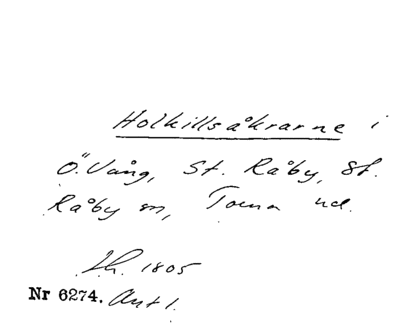 Holkillsåkrarne i
Ö. Vång, St. Råby, St.
Råby sn, Torna hd.
Lh. 1805
Nr 6274. Ant 1.